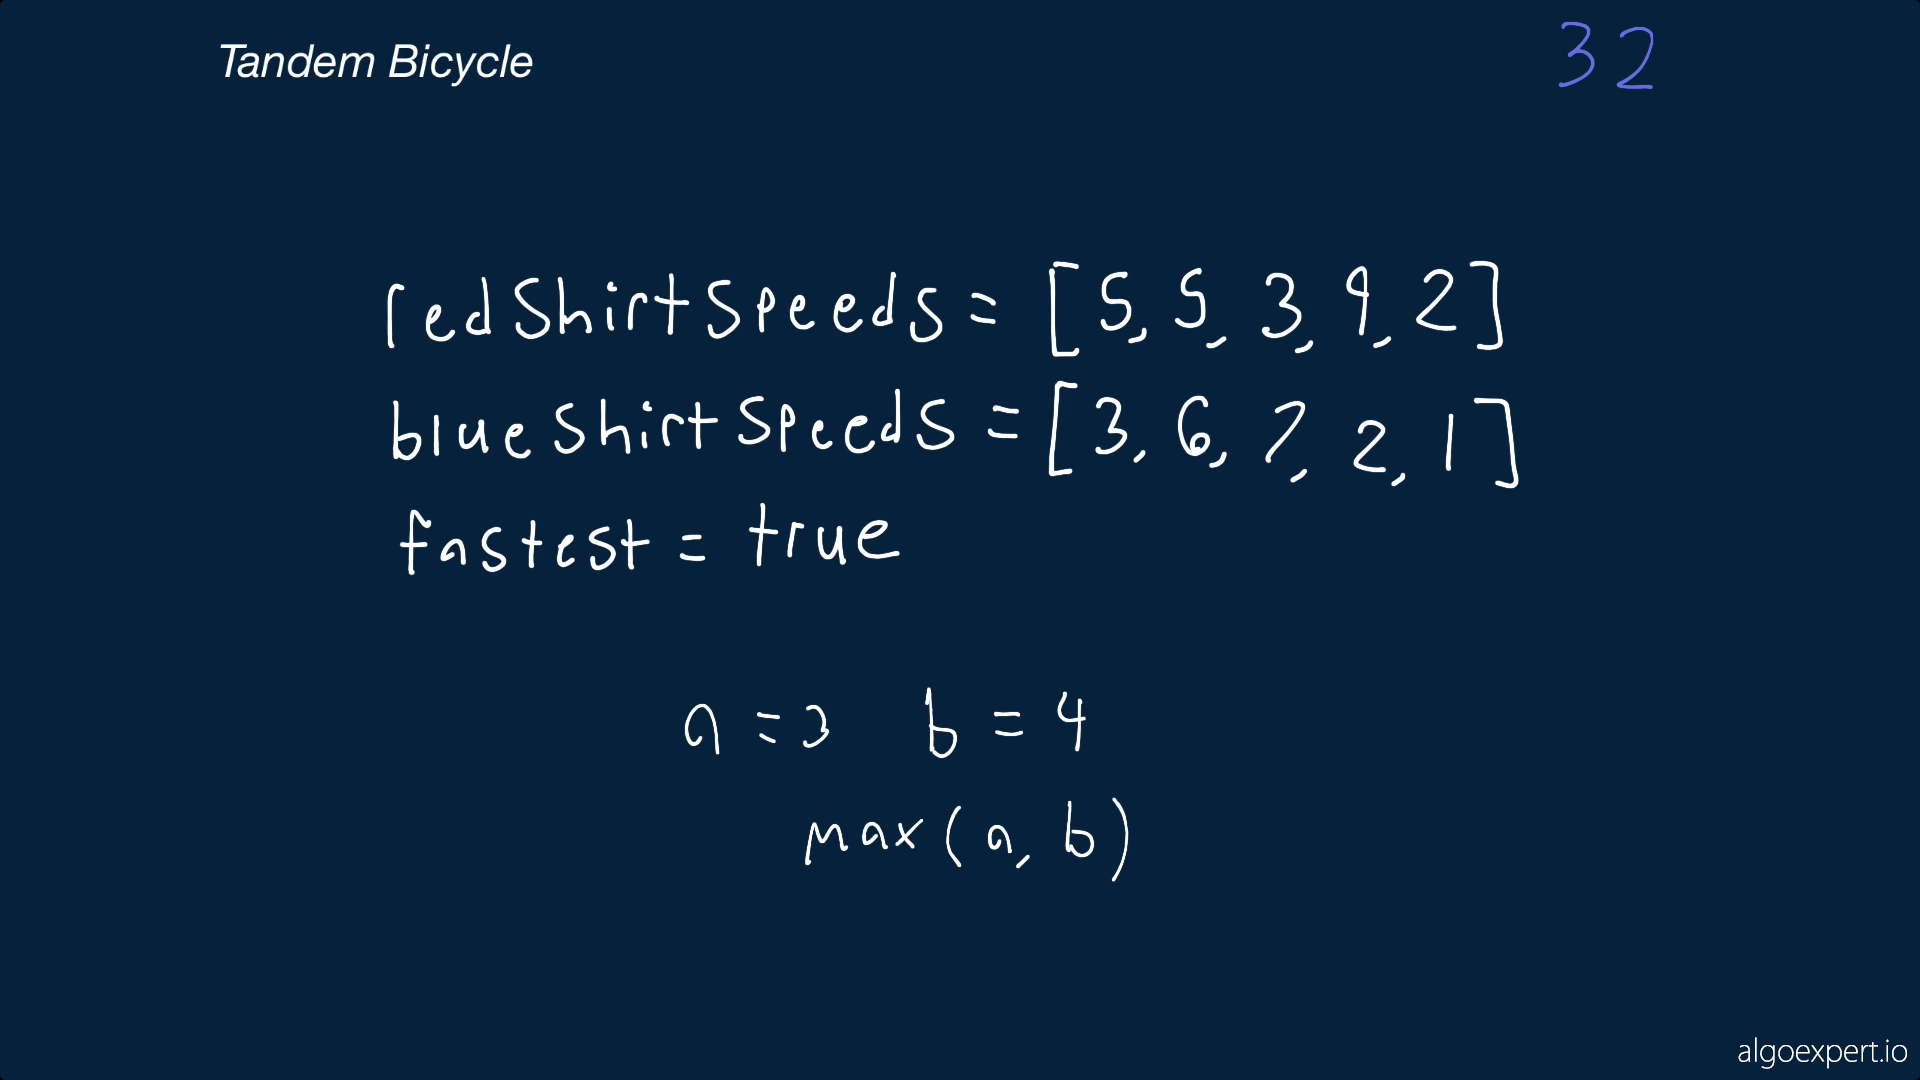 Tandem Bicycle
32
redShirtSpeeds = [5, 5, 3, 9, 2]
blueShirtSpeeds = [3, 6, 7, 2, 1]
fastest = true
a = 3 b = 4
max(a, b)
algoexpert.io